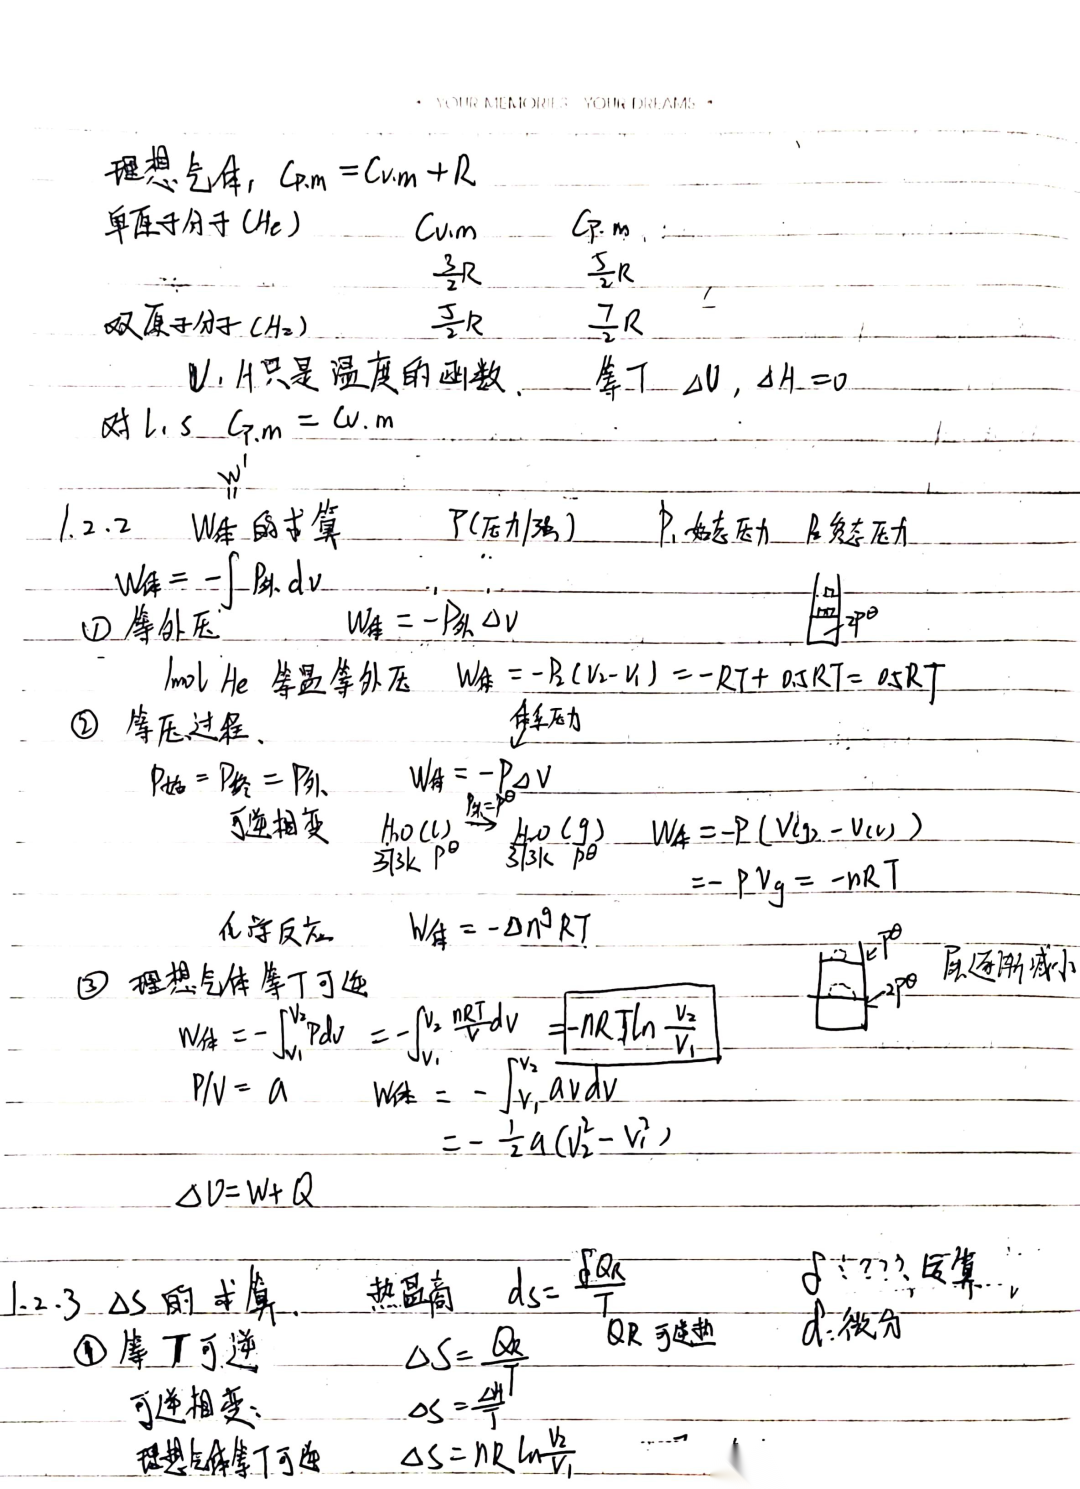 YOUR MEMORIES YOUR DREAMS
理想气体, Cp.m = Cv.m + R
单原子分子 (He) Cv.m Cp.m
3/2 R 5/2 R
双原子分子 (H₂) 5/2 R 7/2 R
U, H只是温度的函数. 等T ΔU, ΔH = 0
对 l, s Cp.m = Cv.m
W'
=
1.2.2 W体 的求算 P(压力/强) P₁ 始态压力 P₂ 终态压力
W体 = -∫P外 dv
① 等外压 W体 = -P外 ΔV 2P^θ
1mol He 等温等外压 W体 = -P₂(V₂-V₁) = -RT + 0.5RT = 0.5RT
② 等压过程. 体系压力
P始 = P终 = P外 W体 = -PΔV
P外=P^θ
可逆相变 H₂O(l) → H₂O(g) W体 = -P(V(g) - V(l))
373K P^θ 373K P^θ
= -PVg = -nRT
化学反应 W体 = -Δn^g RT
③ 理想气体等T可逆 P^θ 2P^θ 压逐渐减小
W体 = -∫_{V₁}^{V₂} Pdv = -∫_{V₁}^{V₂} nRT/V dv = -nRTln V₂/V₁
P/V = a W体 = -∫_{V₁}^{V₂} avdv
= -1/2 a(V₂² - V₁²)
ΔU = W + Q
1.2.3 ΔS 的求算. 热温商 ds = δQR/T δ: ???. 反算
① 等T可逆 ΔS = QR/T QR 可逆热 d: 微分
可逆相变: ΔS = ΔH/T
理想气体等T可逆 ΔS = nRln V₂/V₁